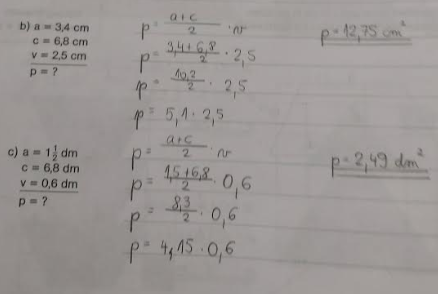 b) a = 3,4 cm
c = 6,8 cm
v = 2,5 cm
p = ?
p = a+c/2 · v
p = 3,4+6,8/2 · 2,5
p = 10,2/2 · 2,5
p = 5,1 · 2,5
p = 12,75 cm²
c) a = 1 1/2 dm
c = 6,8 dm
v = 0,6 dm
p = ?
p = a+c/2 · v
p = 1,5+6,8/2 · 0,6
p = 8,3/2 · 0,6
p = 4,15 · 0,6
p = 2,49 dm²